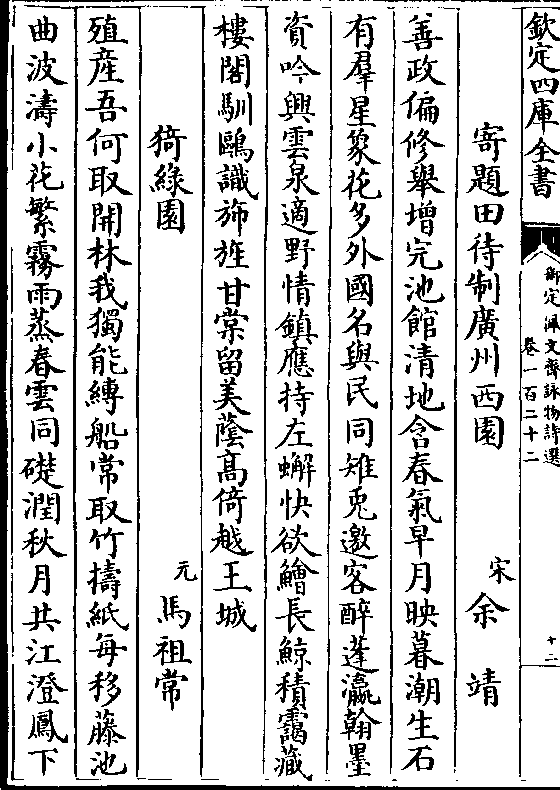 欽定四庫全書
御定佩文齋詠物詩選
卷一百二十二
十二
寄題田待制廣州西園
宋 余靖
善政偏修舉增完池館清地含春氣早月映暮潮生石
有羣星象花多外國名與民同雉兎邀客醉蓬瀛翰墨
資吟興雲泉適野情鎮應持左蠏快欲鱠長鯨積靄藏
樓閣馴鷗識斾旌甘棠留美蔭髙倚越王城
猗綠園
元 馬祖常
殖産吾何取開林我獨能縛船常取竹擣紙每移藤池
曲波濤小花繁霧雨蒸春雲同礎潤秋月共江澄鳳下